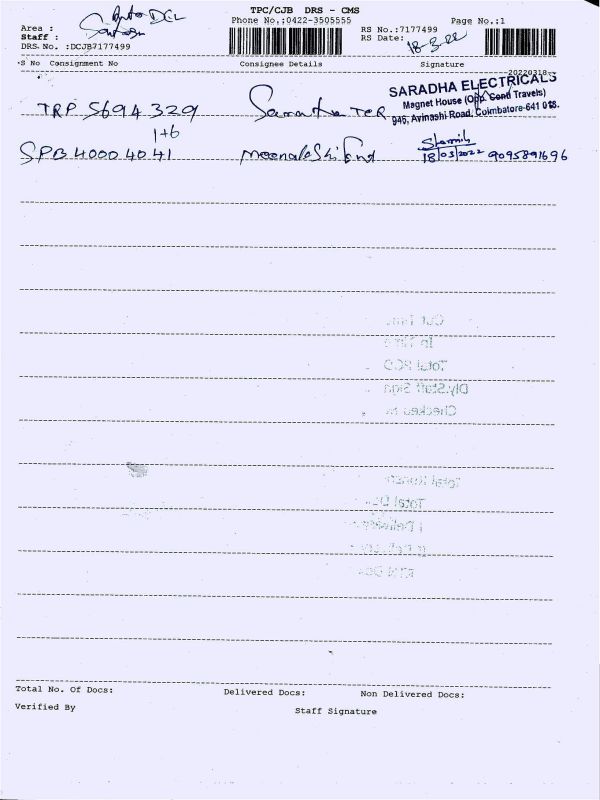 TPC/CJB DRS - CMS
Area : Auto DCL Phone No.:0422-3505555 Page No.:1
Staff : RS No.:7177499
DRS. No. :DCJB7177499 RS Date: 18-3-22
S No Consignment No Consignee Details Signature
20220318
TRP 5694329 SARADHA ELECTRICALS
Magnet House (Opp. Send Travels)
946, Avinashi Road, Coimbatore-641 018.
1+6
SPB 400040 41 18/03/2022 9095891696
Cut Time
In Time
Total POD
Dly.Staff Sign
Checked by
Total
Total
Delivery
Delivery
Total No. Of Docs: Delivered Docs: Non Delivered Docs:
Verified By Staff Signature